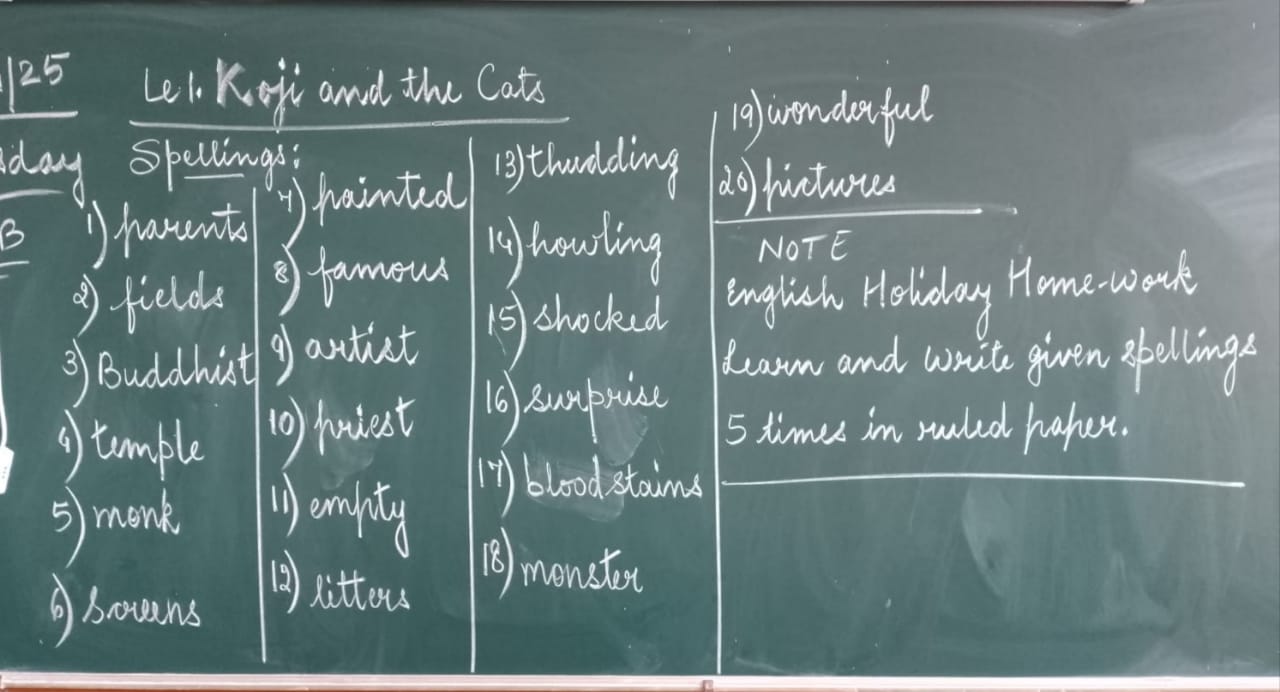 /25
Le 1. Koji and the Cats
sday
Spellings:
B
1) parents
2) fields
3) Buddhist
4) temple
5) monk
6) screens
7) painted
8) famous
9) artist
10) priest
11) empty
12) litters
13) thudding
14) howling
15) shocked
16) surprise
17) blood stains
18) monster
19) wonderful
20) pictures
NOTE
English Holiday Home-work
Learn and write given spellings
5 times in ruled paper.